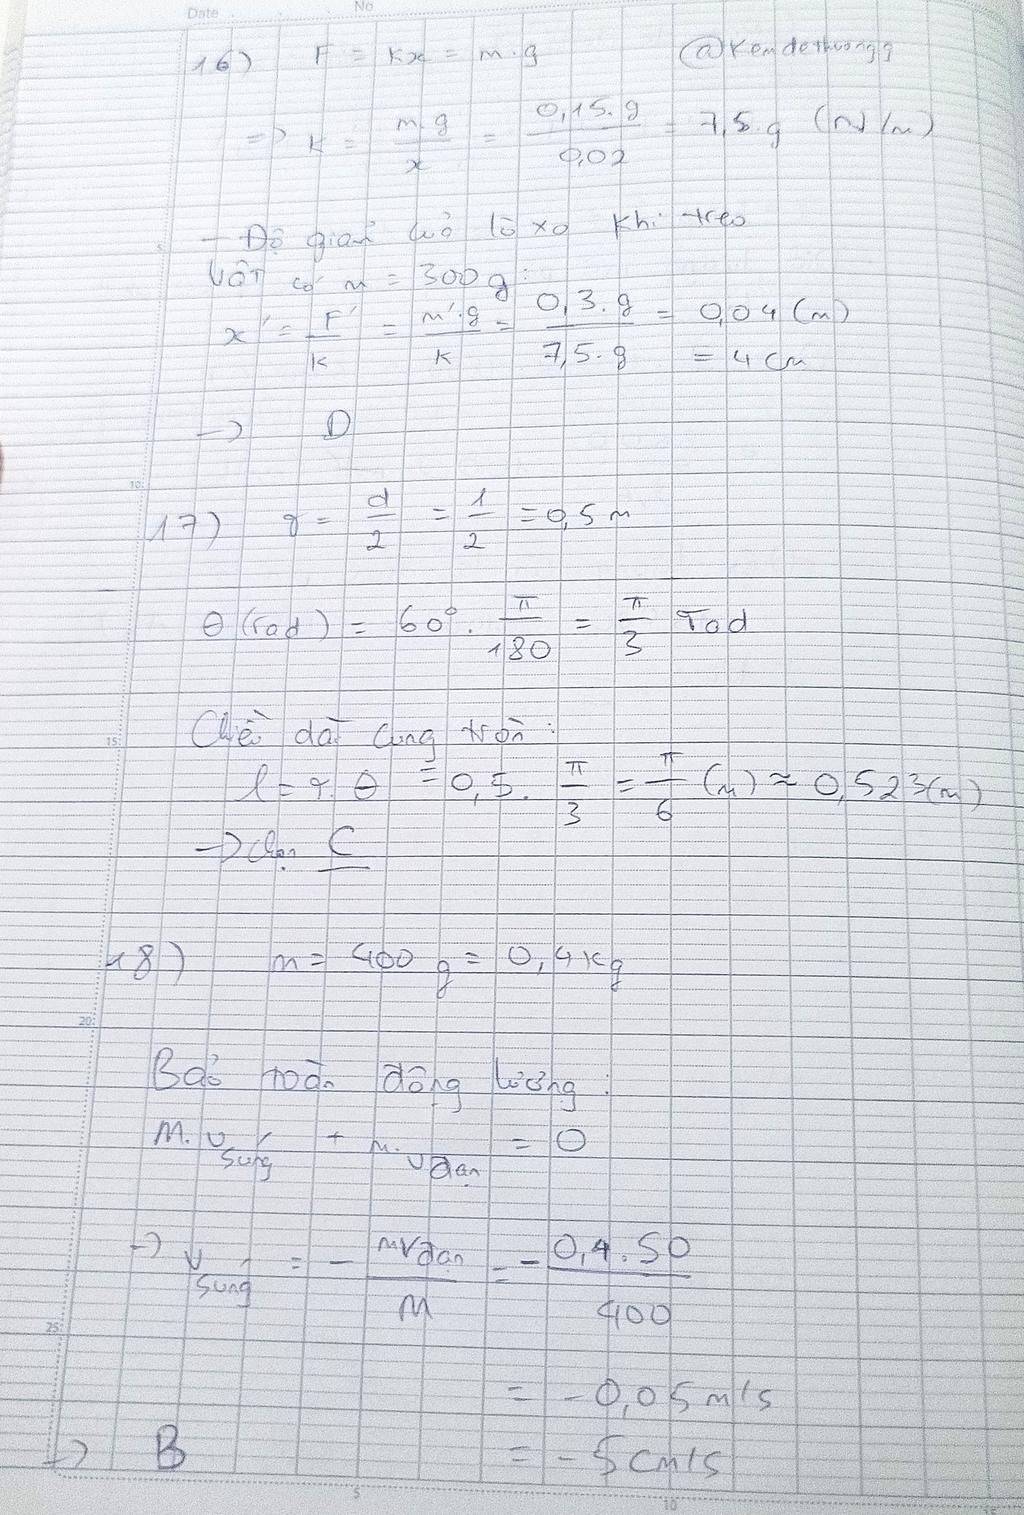 Date No
16) F = kx = m.g @Kemdethuongg
=> K = m.g / x = 0,15.g / 0,02 = 7,5.g (N/m)
- Độ giãn của lò xo khi treo
vật có m = 300g:
x' = F' / k = m'.g / k = 0,3.g / 7,5.g = 0,04 (m)
= 4 cm
-> D
10
17) r = d / 2 = 1 / 2 = 0,5 m
θ (rad) = 60°. π / 180 = π / 3 rad
15
Chiều dài cung tròn:
l = r. θ = 0,5. π / 3 = π / 6 (m) ≈ 0,523(m)
-> Chọn C
18) m = 400 g = 0,4 kg
20
Bảo toàn động lượng:
M. v súng + m. v đạn = 0
-> v súng = - mv đạn / M = - 0,4.50 / 400
25
= - 0,05 m/s
-> B = - 5 cm/s
5 10